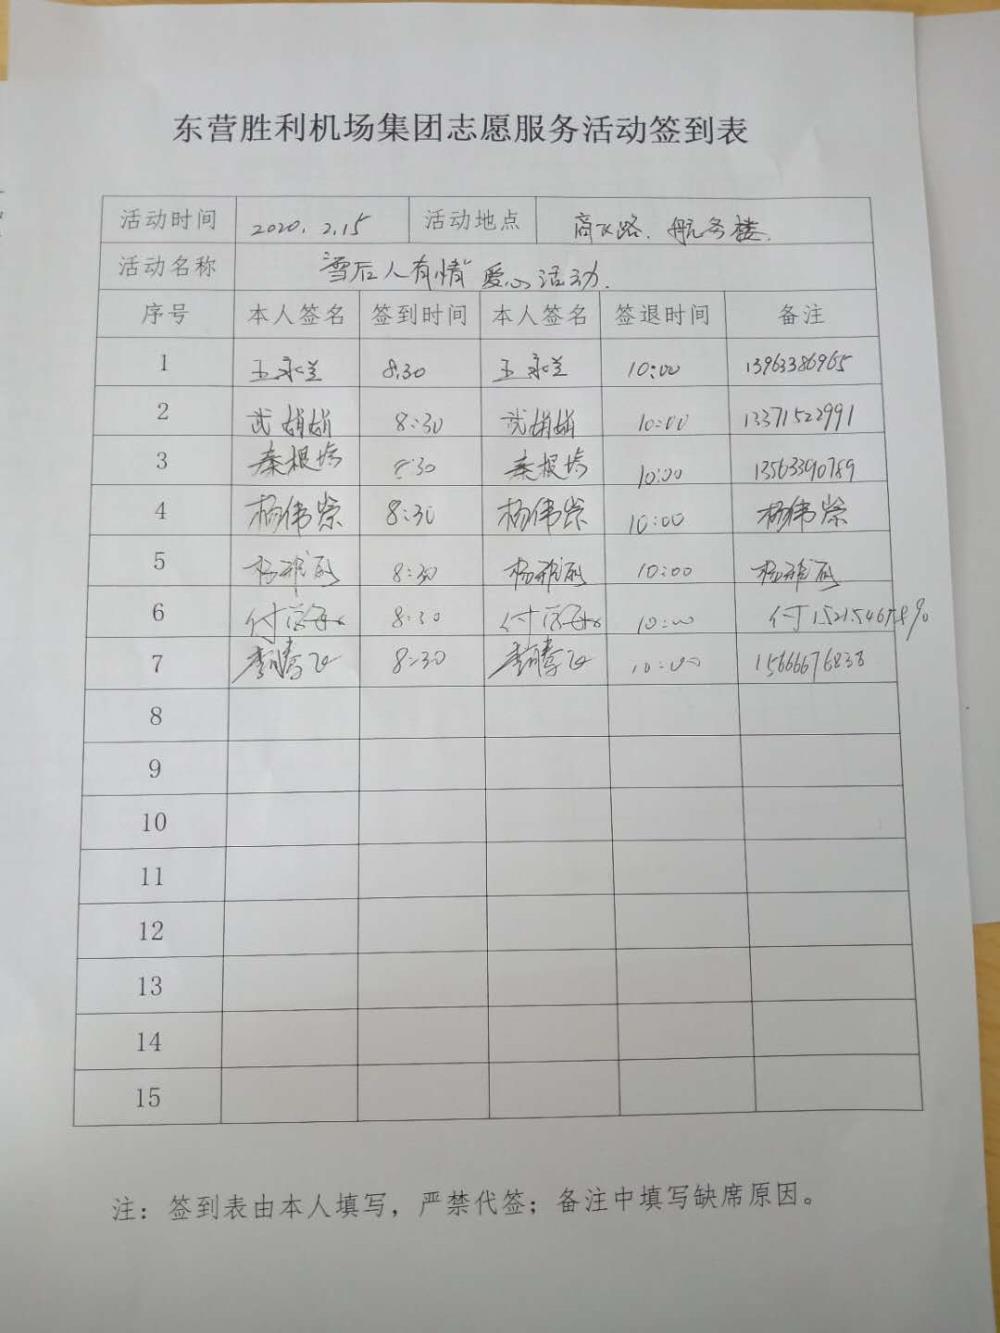 东营胜利机场集团志愿服务活动签到表
活动时间 2020.2.15 活动地点 商飞路、航务楼.
活动名称 "雪后人有情"爱心活动.
序号 本人签名 签到时间 本人签名 签退时间 备注
1 王永兰 8:30 王永兰 10:00 13963386965
2 武娟娟 8:30 武娟娟 10:00 13371522991
3 秦根 8:30 秦根 10:00 13563390789
4 杨伟崇 8:30 杨伟崇 10:00 杨伟崇
5 杨 8:30 杨 10:00 杨
6 付 8:30 付 10:00 付
7 腾飞 8:30 腾飞 10:00 15666676838
8
9
10
11
12
13
14
15
注：签到表由本人填写，严禁代签；备注中填写缺席原因。